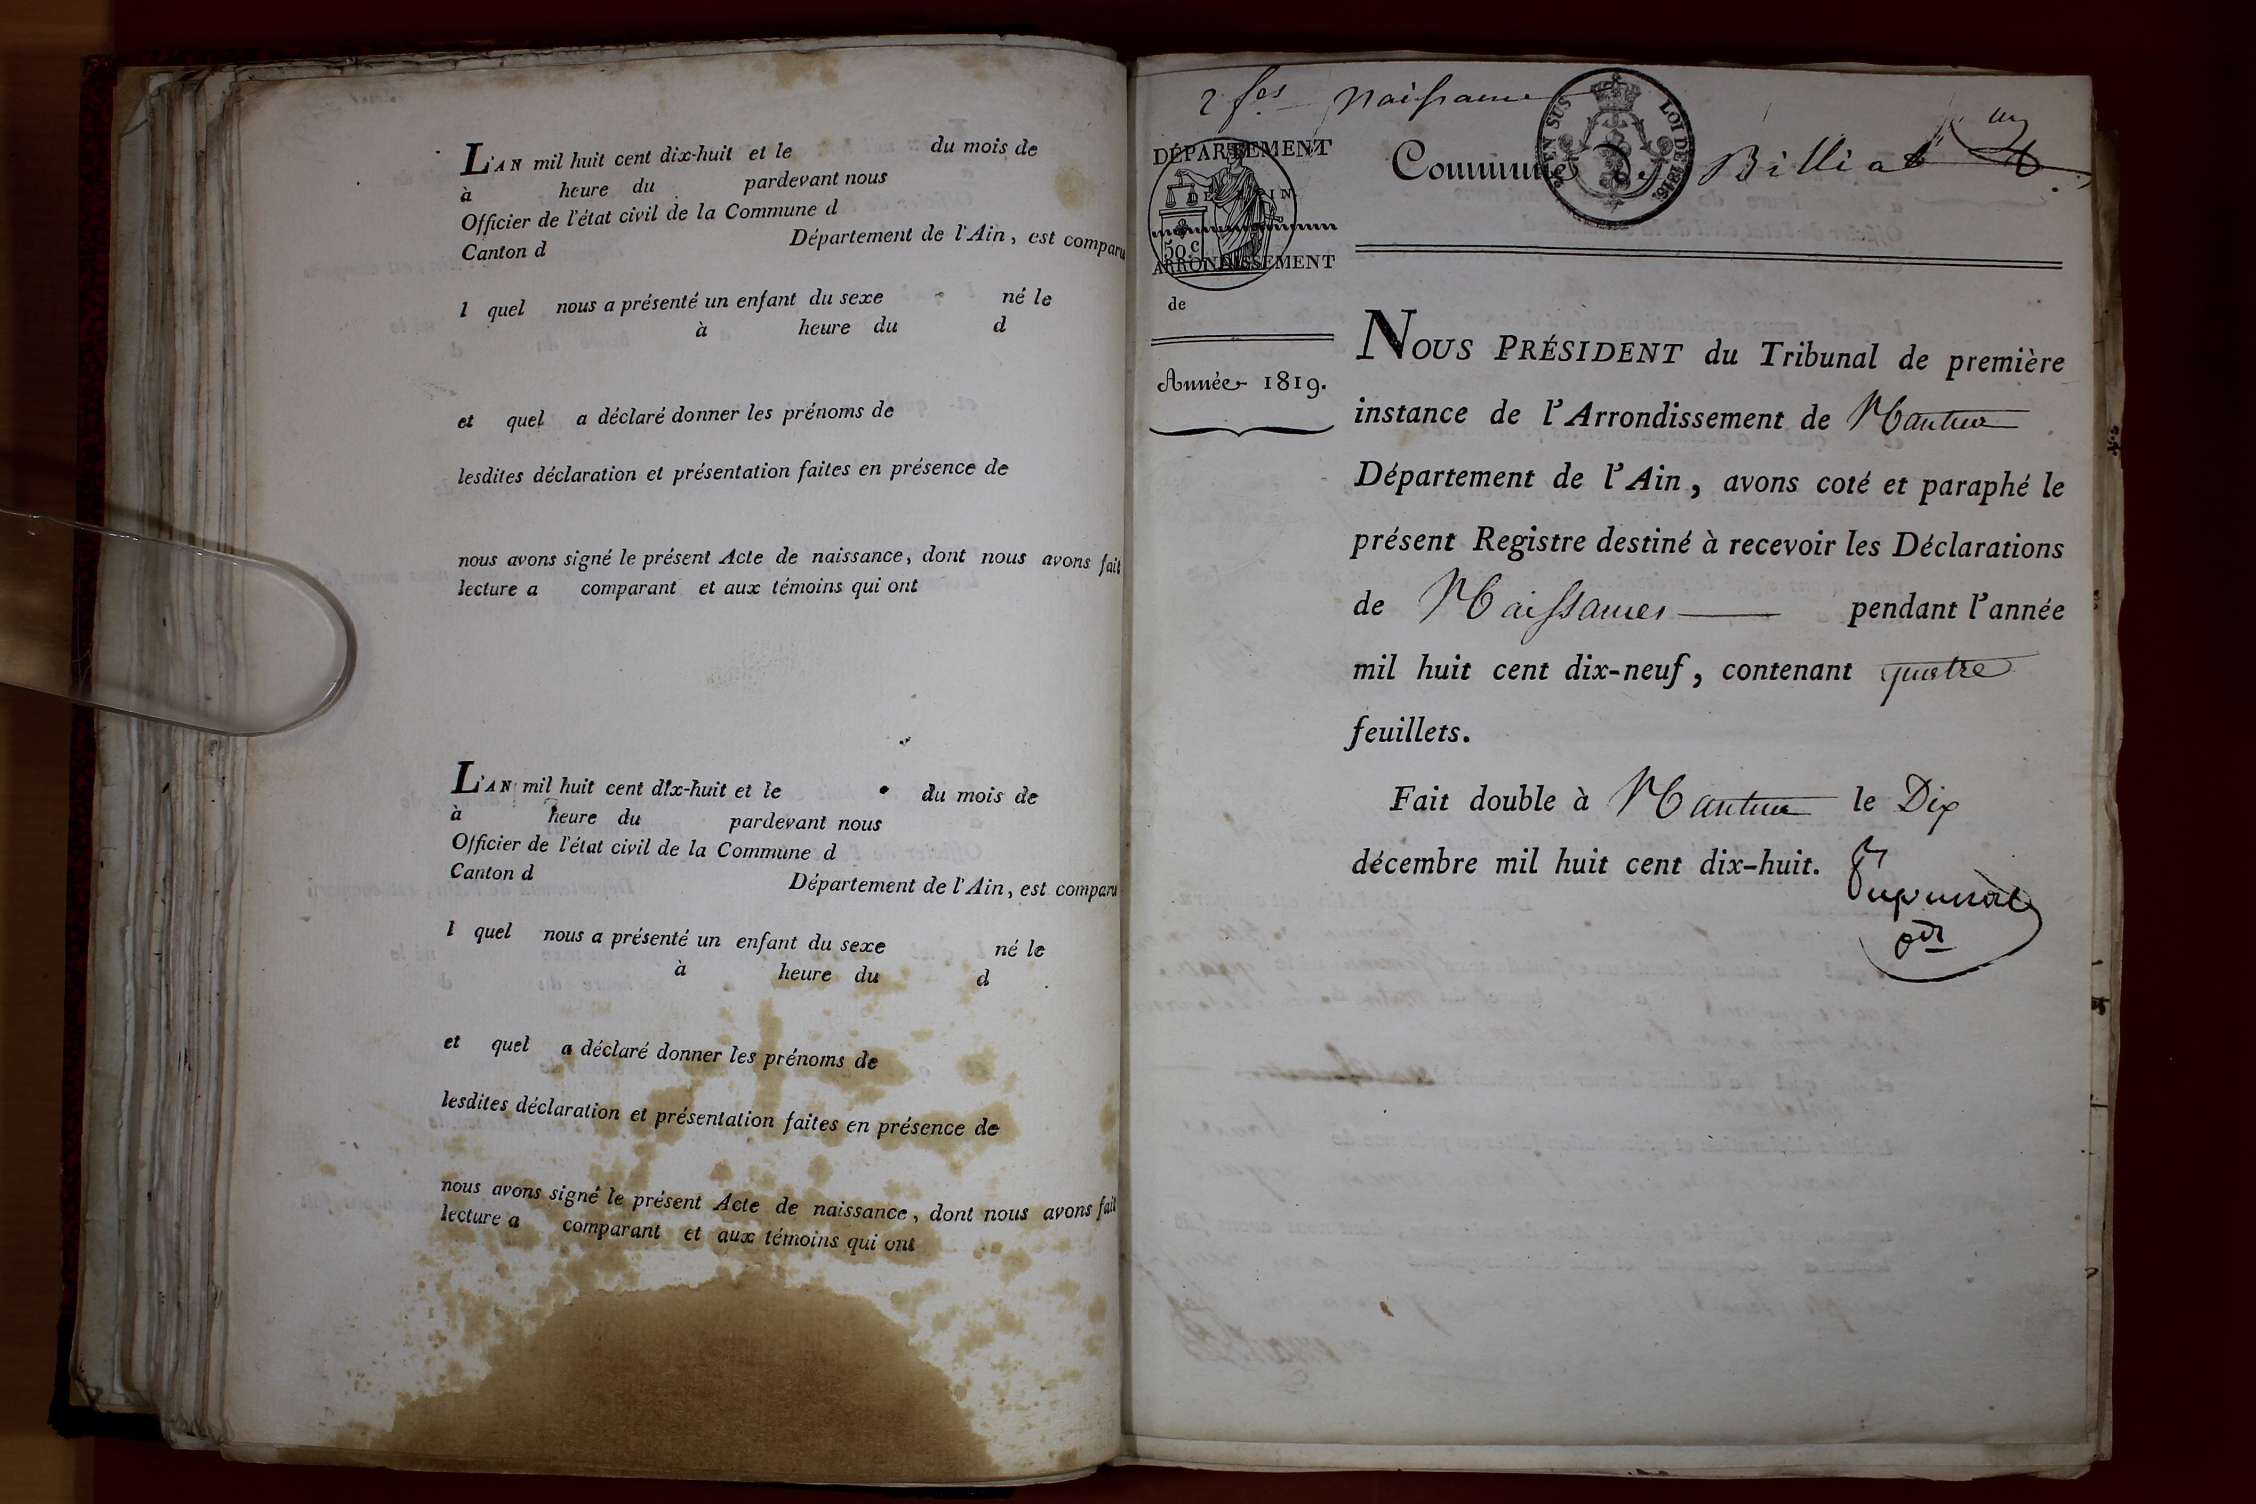 L'AN mil huit cent dix-huit et le du mois de
à heure du pardevant nous
Officier de l'état civil de la Commune d
Canton d Département de l'Ain, est comparu
l quel nous a présenté un enfant du sexe né le
à heure du d
et quel a déclaré donner les prénoms de
lesdites déclaration et présentation faites en présence de
nous avons signé le présent Acte de naissance, dont nous avons fait
lecture a comparant et aux témoins qui ont
L'AN mil huit cent dix-huit et le du mois de
à heure du pardevant nous
Officier de l'état civil de la Commune d
Canton d Département de l'Ain, est comparu
l quel nous a présenté un enfant du sexe né le
à heure du d
et quel a déclaré donner les prénoms de
lesdites déclaration et présentation faites en présence de
nous avons signé le présent Acte de naissance, dont nous avons fait
lecture a comparant et aux témoins qui ont
2 f.es naissance
EN SUS LOI DE 1816.
DÉPARTEMENT
DE L'AIN
50 c
ARRONDISSEMENT
de
Année 1819.
un
Commune de Billiat
NOUS PRÉSIDENT du Tribunal de première
instance de l'Arrondissement de Nantua
Département de l'Ain, avons coté et paraphé le
présent Registre destiné à recevoir les Déclarations
de Naissances pendant l'année
mil huit cent dix-neuf, contenant quatre
feuillets.
Fait double à Nantua le Dix
décembre mil huit cent dix-huit.